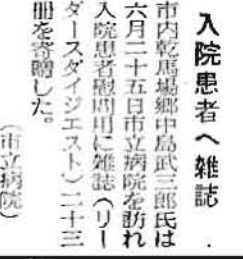 入院患者へ雑誌
市内乾馬場郷中島武三郎氏は
六月二十五日市立病院を訪れ
入院患者慰問用に雑誌(リー
ダースダイジエスト)二十三
冊を寄贈した。
(市立病院)